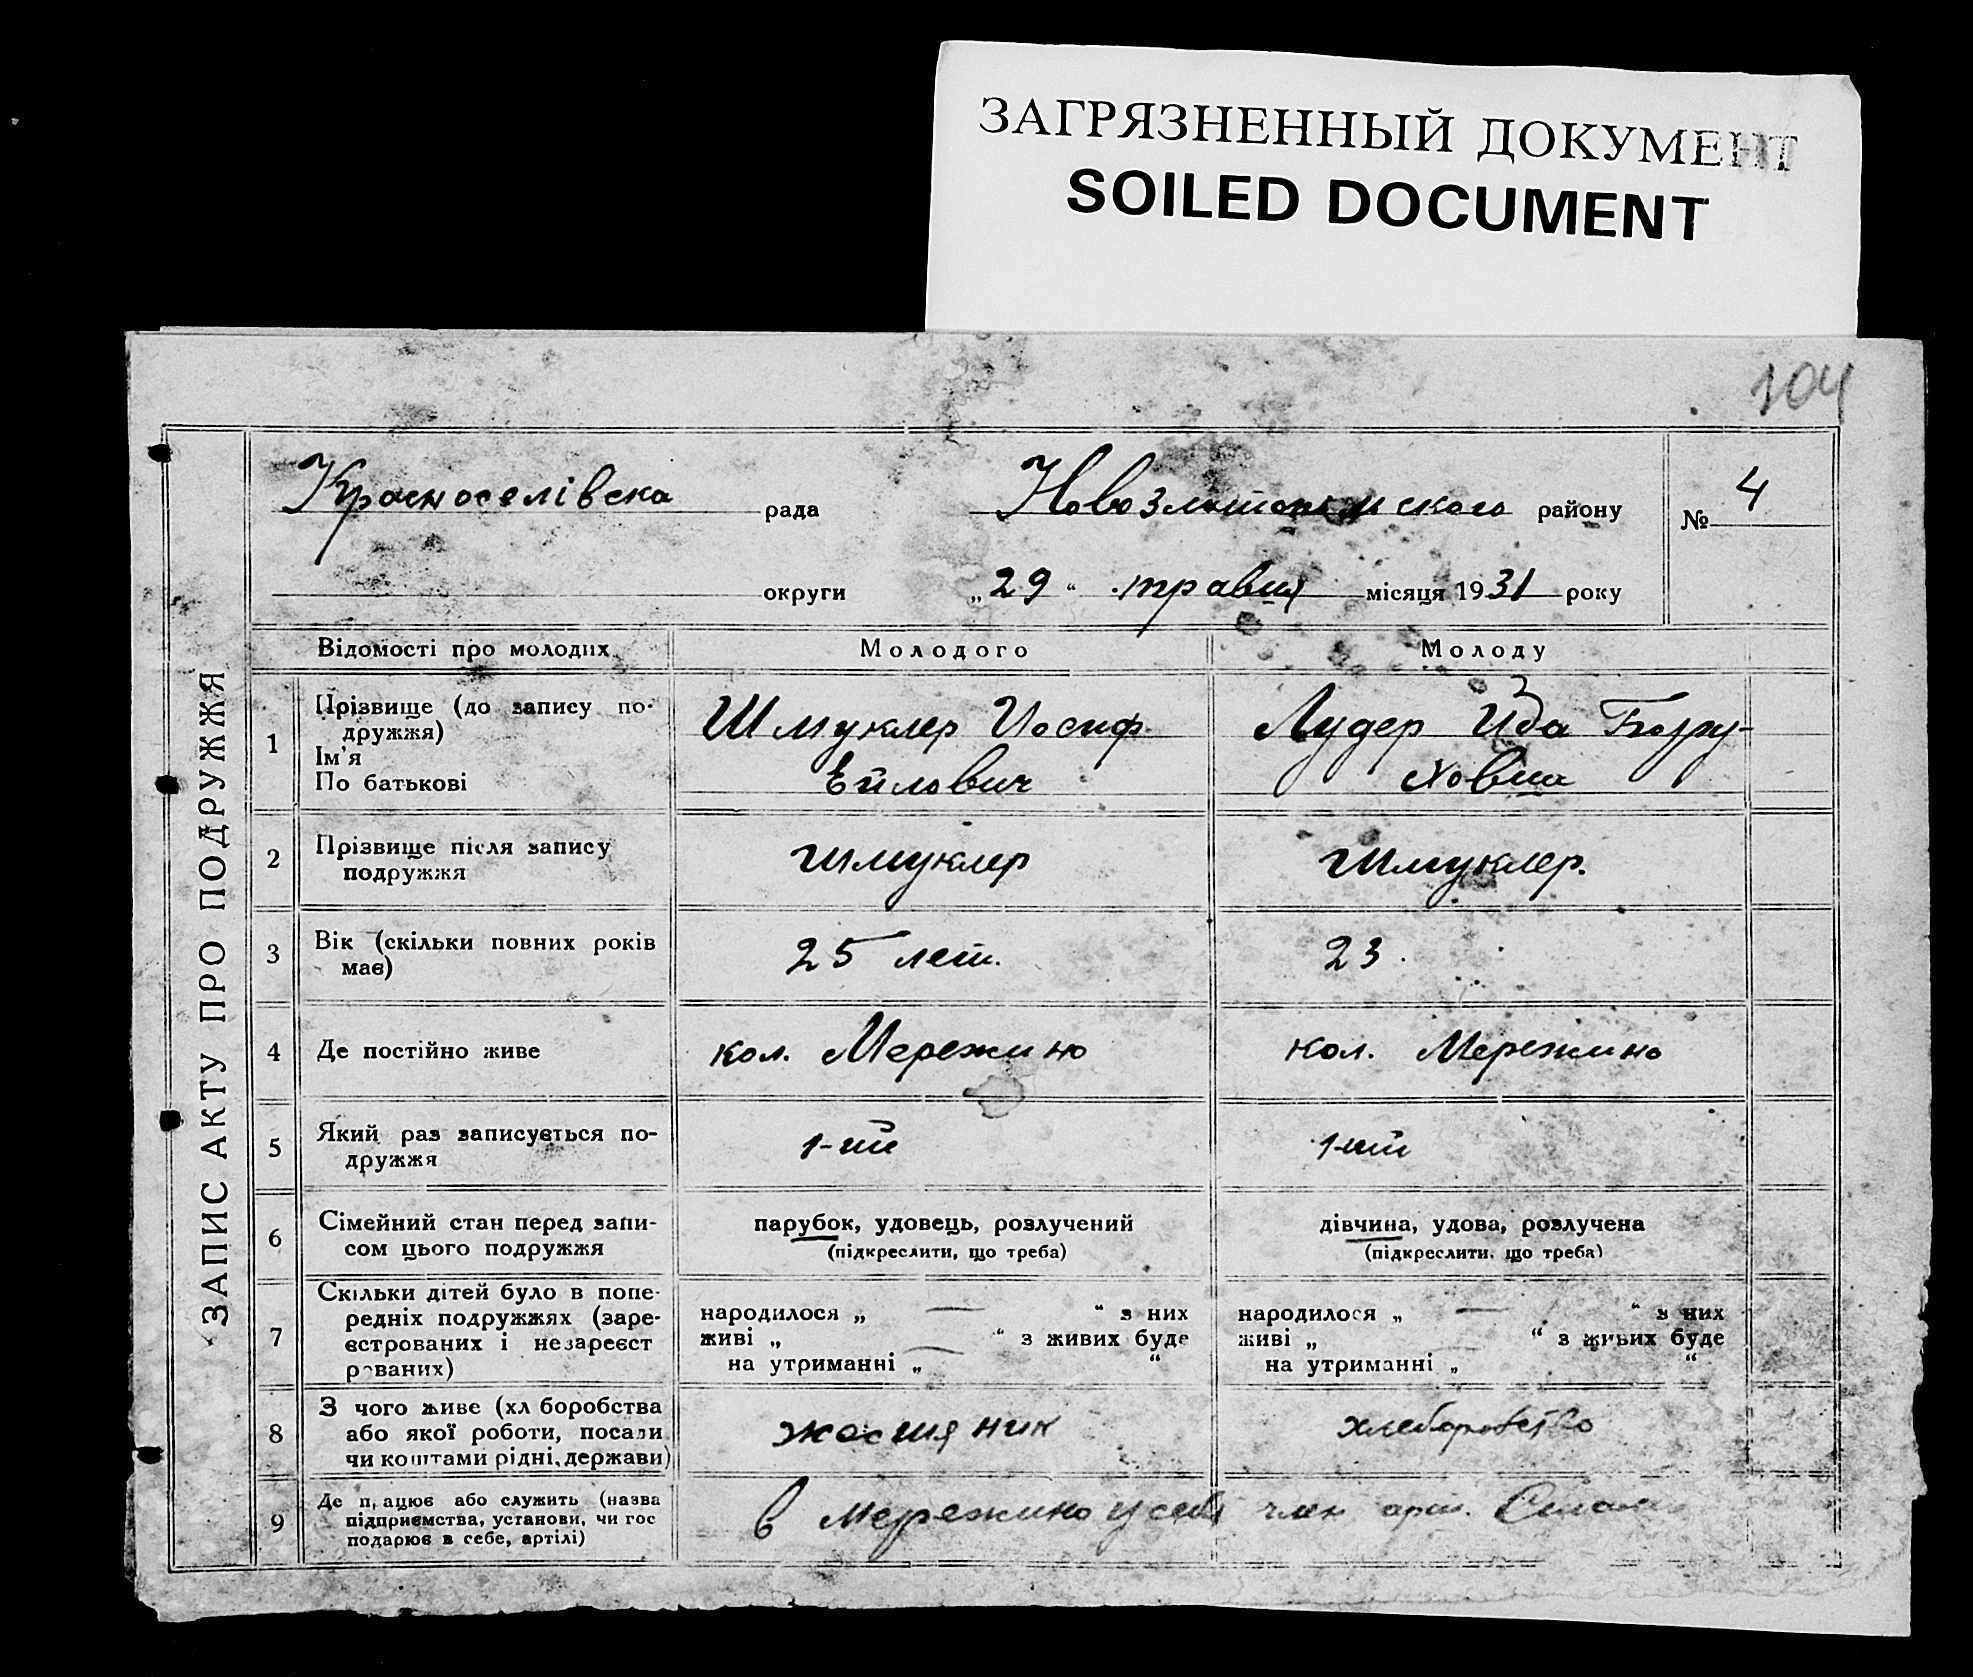 ЗАГРЯЗНЕННЫЙ ДОКУМЕНТ
SOILED DOCUMENT
104
ЗАПИС АКТУ ПРО ПОДРУЖЖЯ
Красноселівска рада Новозлатопольского району № 4
округи „29“ травня місяця 1931 року
Відомості про молодих Молодого Молоду
1 Прізвище (до запису по-
дружжя)
Ім'я
По батькові
Шмуклер Иосиф
Ейлович
Лудер Ида Бору-
ховна
2 Прізвище після запису
подружжя
Шмуклер
Шмуклер.
3 Вік (скільки повних років
має)
25 лет.
23.
4 Де постійно живе
кол. Мережино
кол. Мережино
5 Який раз записується по-
дружжя
1-ий
1-ий
6 Сімейний стан перед запи-
сом цього подружжя
парубок, удовець, розлучений
(підкреслити, що треба)
дівчина, удова, розлучена
(підкреслити, що треба)
7 Скільки дітей було в попе-
редніх подружжях (заре-
єстрованих і незареєст
рованих)
народилося „ — “ з них
живі „ — “ з живих буде
на утриманні „ “
народилося „ — “ з них
живі „ “ з живих буде
на утриманні „ “
8 З чого живе (хліборобства
або якої роботи, посади
чи коштами рідні, держави)
жестяник
хлеборобство
9 Де працює або служить (назва
підприємства, установи, чи гос
подарює в себе, артілі)
в Мережино у себя
член арт.